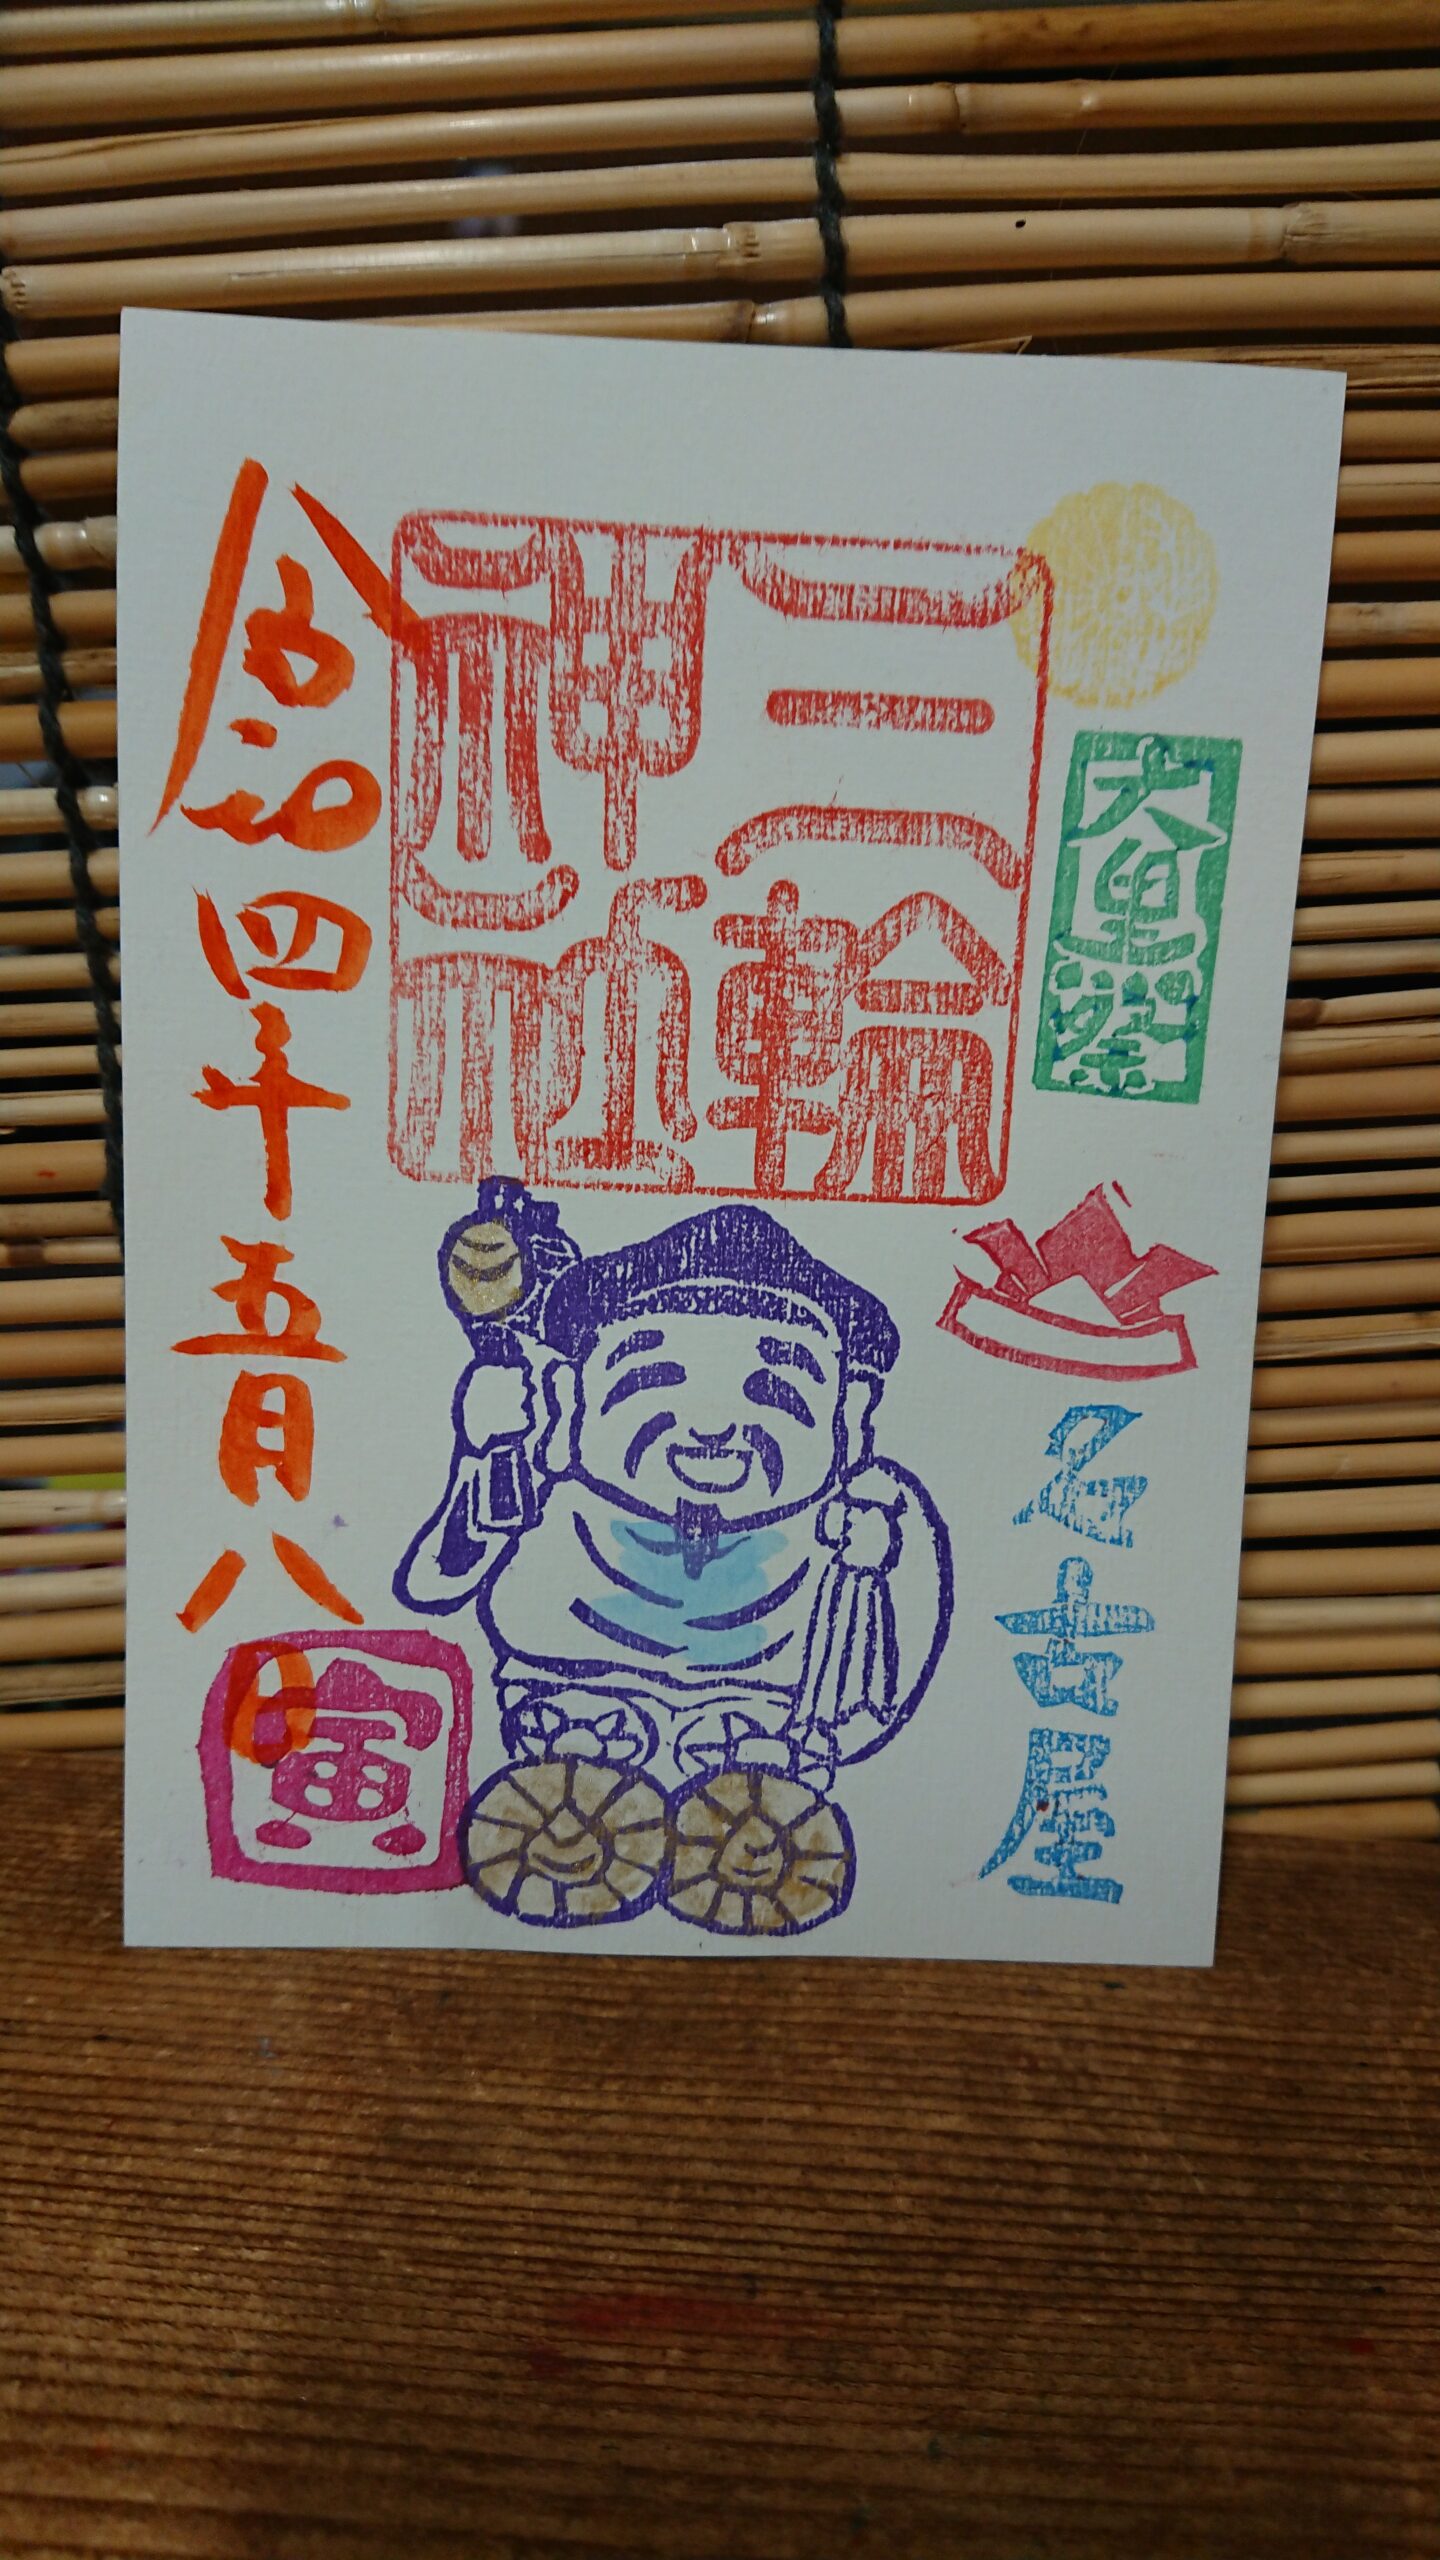 大黒祭
名古屋
三輪
神社
令和四年五月八日
寅